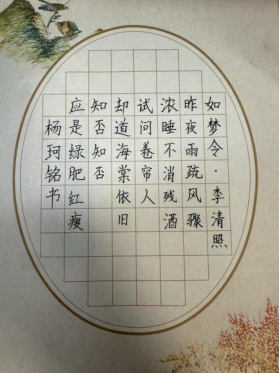 如梦令·李清照
昨夜雨疏风骤
浓睡不消残酒
试问卷帘人
却道海棠依旧
知否知否
应是绿肥红瘦
杨珂铭书